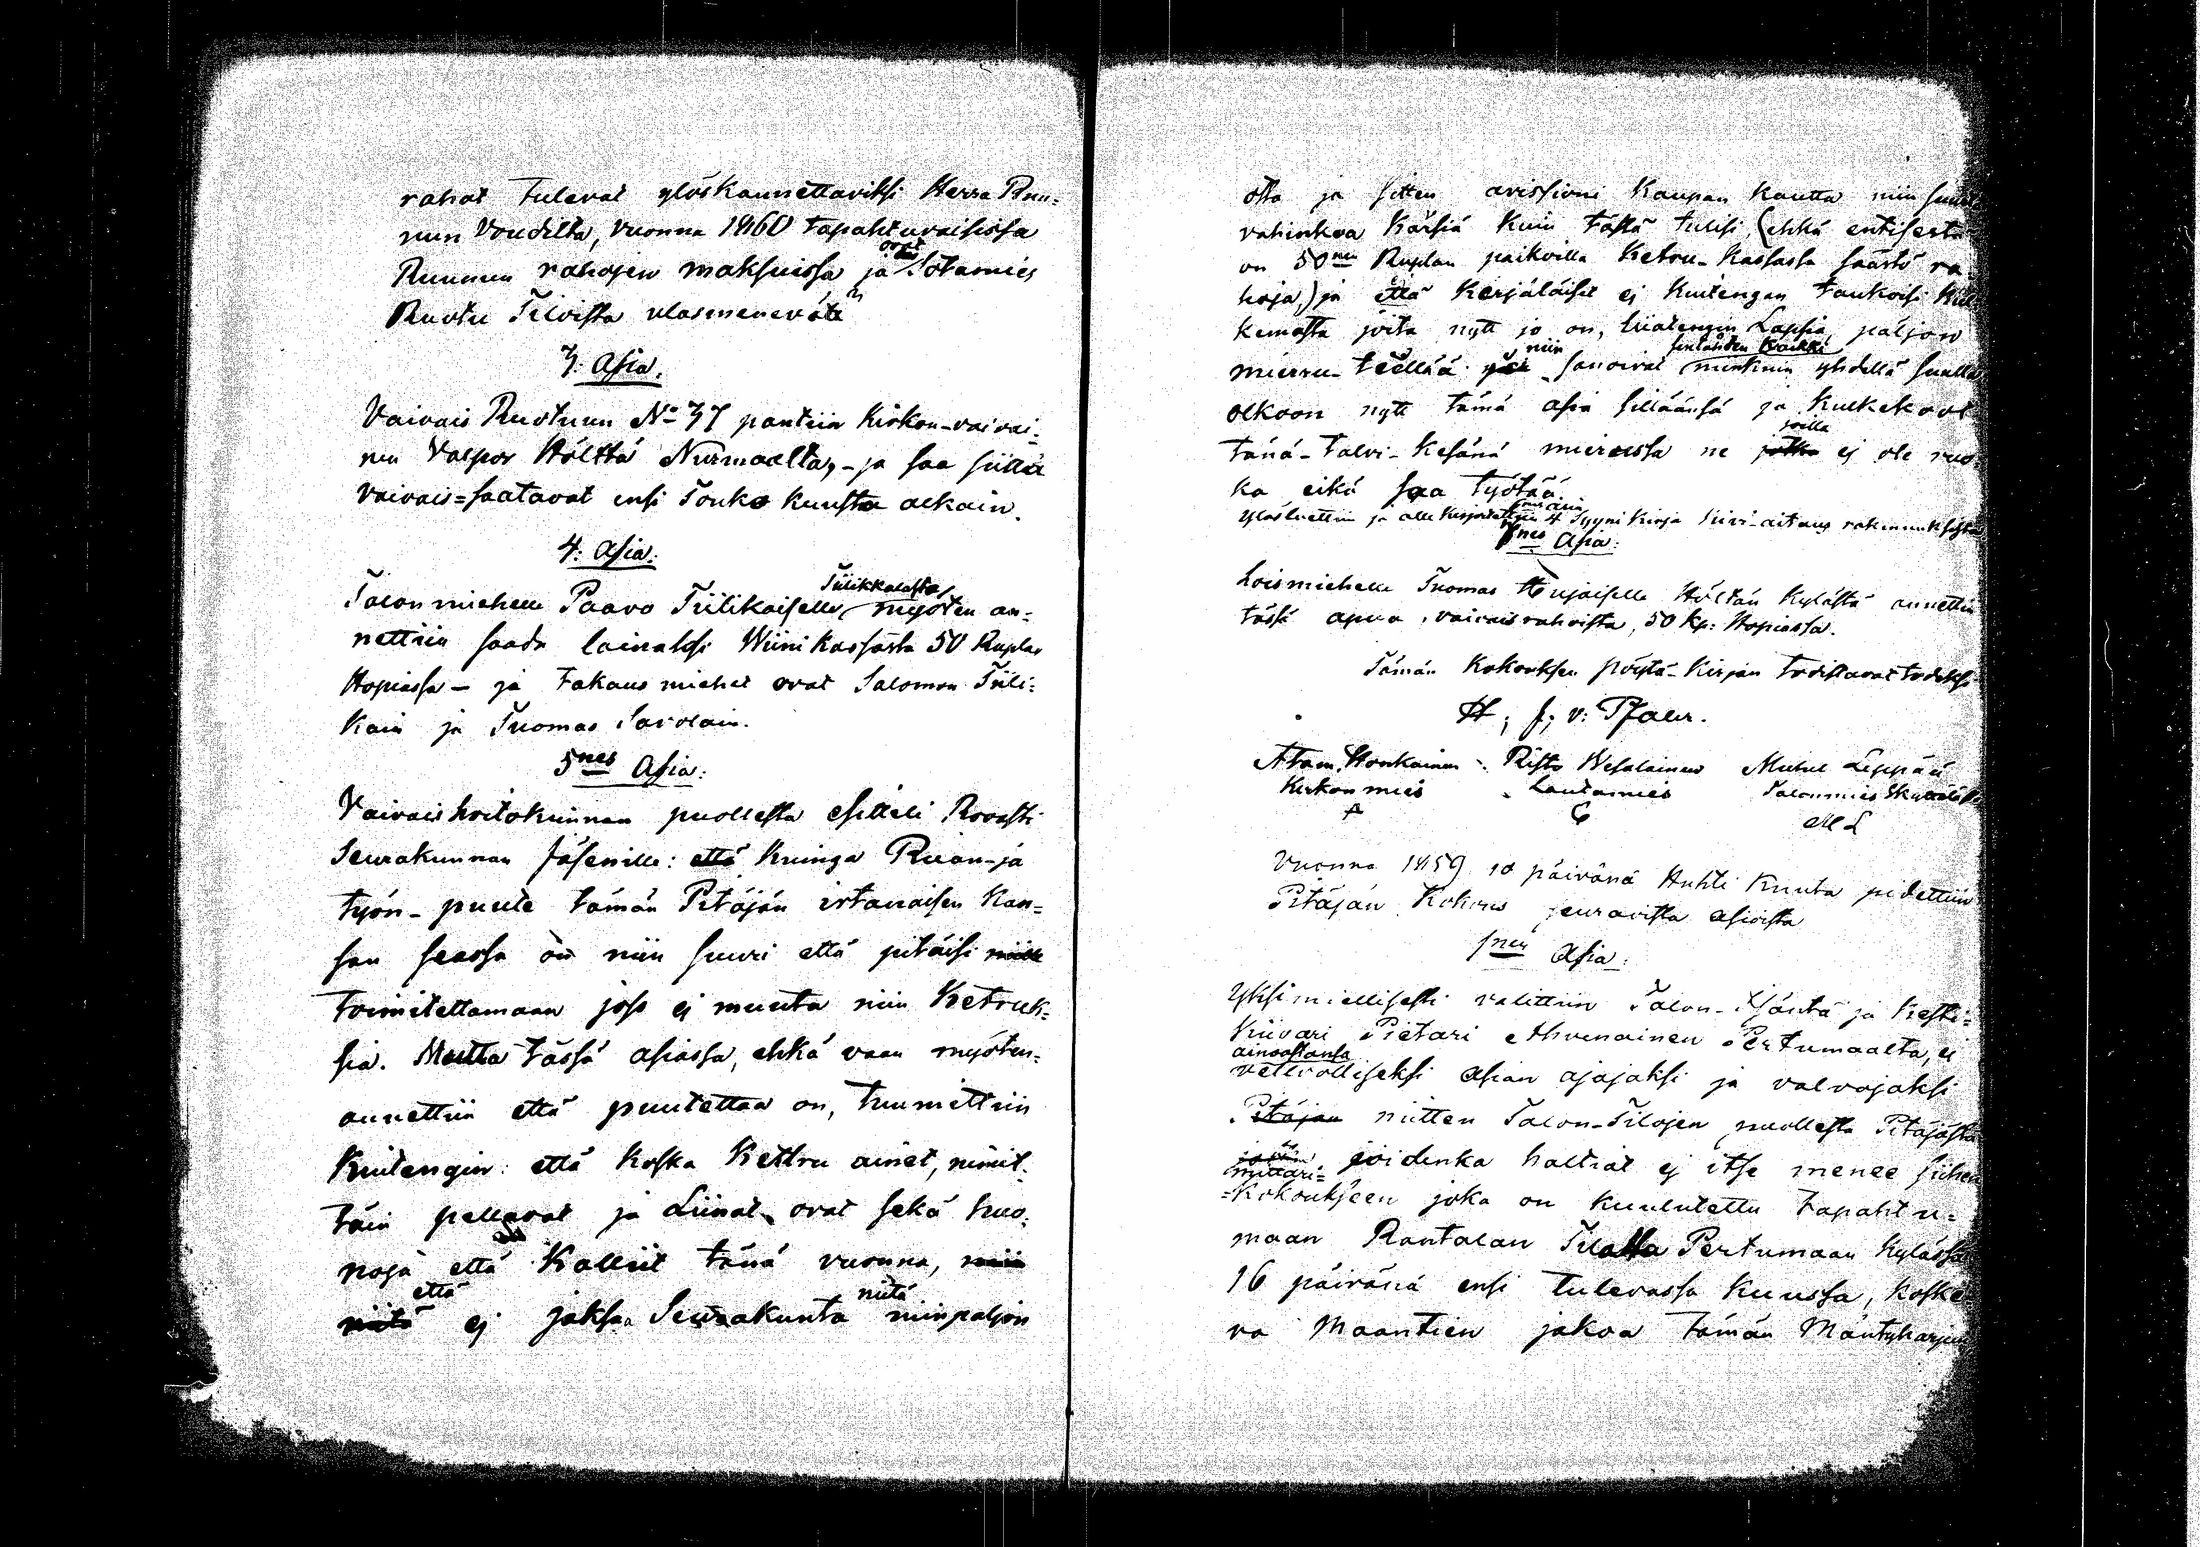 rahat tulevat ylöskannettaviksi Herra Ruu-
nun Voudilta, vuonna 1860 tapahtuvaisissa
ovat
Ruunun rahojen maksuissa ja Sotamies
Ruotu Tiloista ulosmenevät
3: Asia.
Vaivais Ruotuun No 37 pantiin Kirkon-vaivai-
nen Valpor Höltta Nurmaalta, - ja saa siittä
vaivais=saatavat ensi Touko kuusta alkain.
4: Asia:
Tiilikkalasta
Talon miehelle Paavo Tiilikaiselle myöten an-
nettiin saada lainaksi Wiini kassasta 50 Ruplaa
Hopiassa - ja takaus miehet ovat Salomon Tiili-
kain ja Tuomas Savolain.
5nes Asia:
Vaivaishoitokunnan puolesta esitteli Rovasti
Seurakunnan Jäsenille: että kuinga Ruan-ja
työn-puute tämän Pitäjän irtanaisen Kan-
san seassa on niin suuri että pitäisi niille
toimitettamaan jos ej muuta niin Ketruk-
sia. Mutta tässä asiassa, ehkä vaan myöten-
annettiin että puutettaa on, tuumittiin
Kuitengin: että koska Kettru ainet, nimit-
täin pellavat ja Liinat, ovat sekä huo-
noja että Kalliit tänä vuonna, niin
että niitä
niitä ej jaksa Seurakunta niinpaljon
otta ja sitten avissioni Kaupan kautta niin suurta
vahinkoa kärsiä kuin tästä tulisi, (ehkä entisestä
on 50nen Ruplan paikoilla Ketru-Kassassa säästö ra-
hoja,) ja että Kerjäläiset ej kuitengan taukoisi kul-
kemasta joita nytt jo on, liiatengin Lapsia, paljon
niin sentähden Kaikki
mierun-tiellää sanoivat yhdellä suulla
olkoon nytt tämä asia sillänsä ja kulkekoot
joilla
tänä-talvi-Kesänä mierussa ne jotka ej ole ruo-
ka eikä saa työtää
Ylösluettiin ja alle kirjoitettiin 4 Syyni Kirja kivi-aitaus rakennuksesta
nes Asia:
Loismiehelle Tuomas Hujaiselle Höltän Kylästä annettiin
tässä apua, vaivaisrahoista, 50 kp: Hopiassa.
Tämän Kokouksen pöytä-Kirjan todistavat todeksi
H, f, v: Pfaler.
Atam, Honkainen Risto Wesalainen Mickel Leppää
Kirkon mies Lautamies Talonmies
A C M L
Vuonna 1859 10 päivänä Huhti Kuuta pidettiin
Pitäjän Kokous seuravista asioista
1nen Asia:
Yksimielisesti valittiin Talon-Isäntä ja Kesti-
Kiivari Pietari Ahvenainen Pertumaalta, ej
ainoastansa
velvolliseksi asian ajajaksi ja valvojaksi
Pitäjän niitten Talon-Tilojen puolesta Pitäjästä
joidenka haltiat ej itse menee siihen
mittari=
=Kokoukseen joka on kuulutettu tapahtu-
maan Rantalan Tilalla Pertumaan Kylässä
16 päivänä ensi tulevassa kuussa, koske-
va Maantien jakoa tämän Mäntyharjun